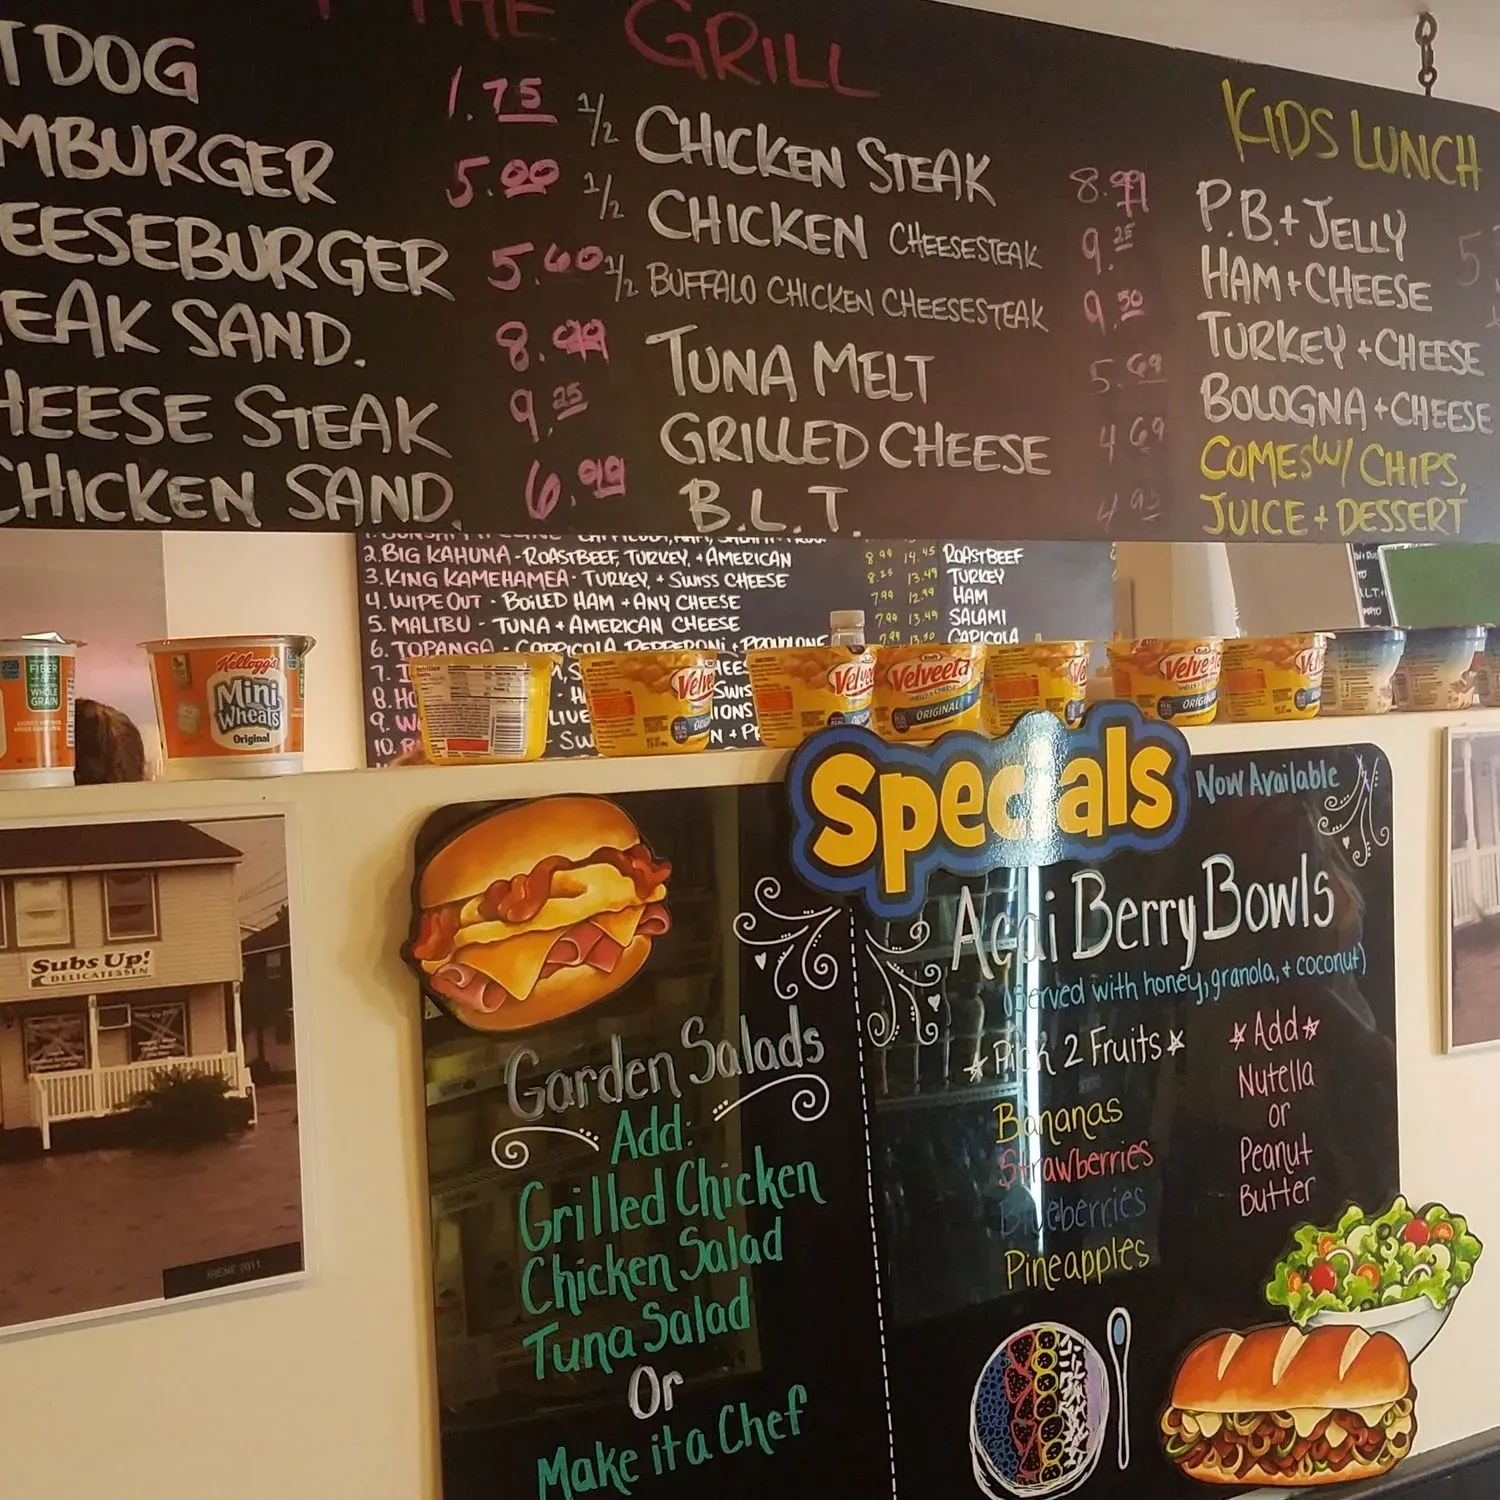 THE GRILL
T DOG 1.75
MBURGER 5.00
EESEBURGER 5.60
EAK SAND. 8.99
HEESE STEAK 9.25
CHICKEN SAND. 6.99
1/2 CHICKEN STEAK 8.99
1/2 CHICKEN CHEESESTEAK 9.25
1/2 BUFFALO CHICKEN CHEESESTEAK 9.50
TUNA MELT 5.69
GRILLED CHEESE 4.69
B.L.T. 4.95
KIDS LUNCH
P.B.+JELLY
HAM+CHEESE
TURKEY+CHEESE
BOLOGNA+CHEESE
COMES W/ CHIPS,
JUICE + DESSERT
2. BIG KAHUNA - ROASTBEEF, TURKEY, + AMERICAN 8.99 14.45
3. KING KAMEHAMEA - TURKEY, + SWISS CHEESE 8.25 13.49
4. WIPE OUT - BOILED HAM + ANY CHEESE 7.99 12.99
5. MALIBU - TUNA + AMERICAN CHEESE 7.99 13.49
6. TOPANGA - CAPPICOLA, PEPPERONI + PROVOLONE 7.99 13.50
7.
8. HO
9.
10.
ROASTBEEF
TURKEY
HAM
SALAMI
CAPICOLA
FIBER
WHOLE
GRAIN
Kellogg's
Mini
Wheats
Original
Velveeta
Kraft
Velveeta
ORIGINAL
Velveeta
ORIGINAL
Subs Up!
DELICATESSEN
IRENE 2011
Specials
Garden Salads
Add:
Grilled Chicken
Chicken Salad
Tuna Salad
Or
Make it a Chef
Now Available
Acai Berry Bowls
(served with honey, granola, + coconut)
Pick 2 Fruits
Bananas
Strawberries
Blueberries
Pineapples
Add
Nutella
or
Peanut
Butter